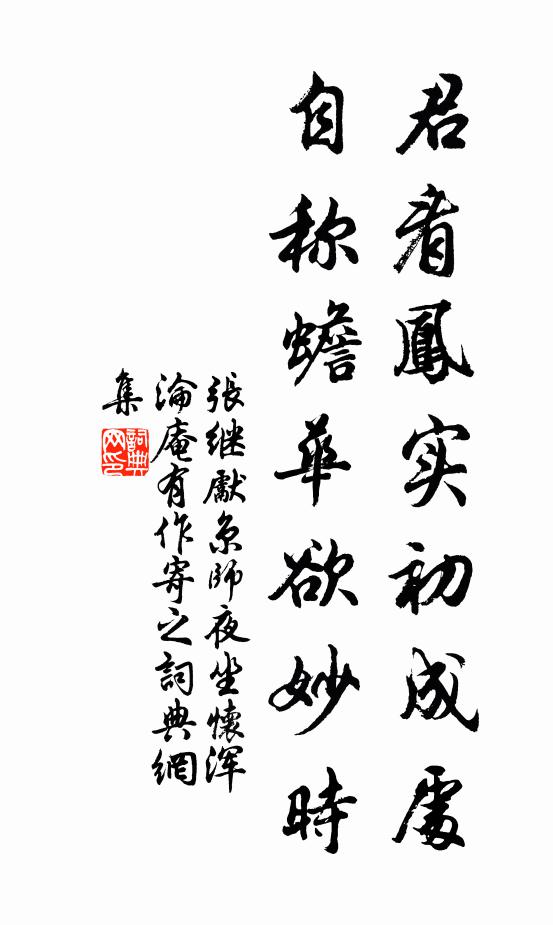 君看鳳实初成處
自称蟾華欲妙時
張继獻京師夜坐懷浑
淪庵有作寄之詞典網
集
詞典网印